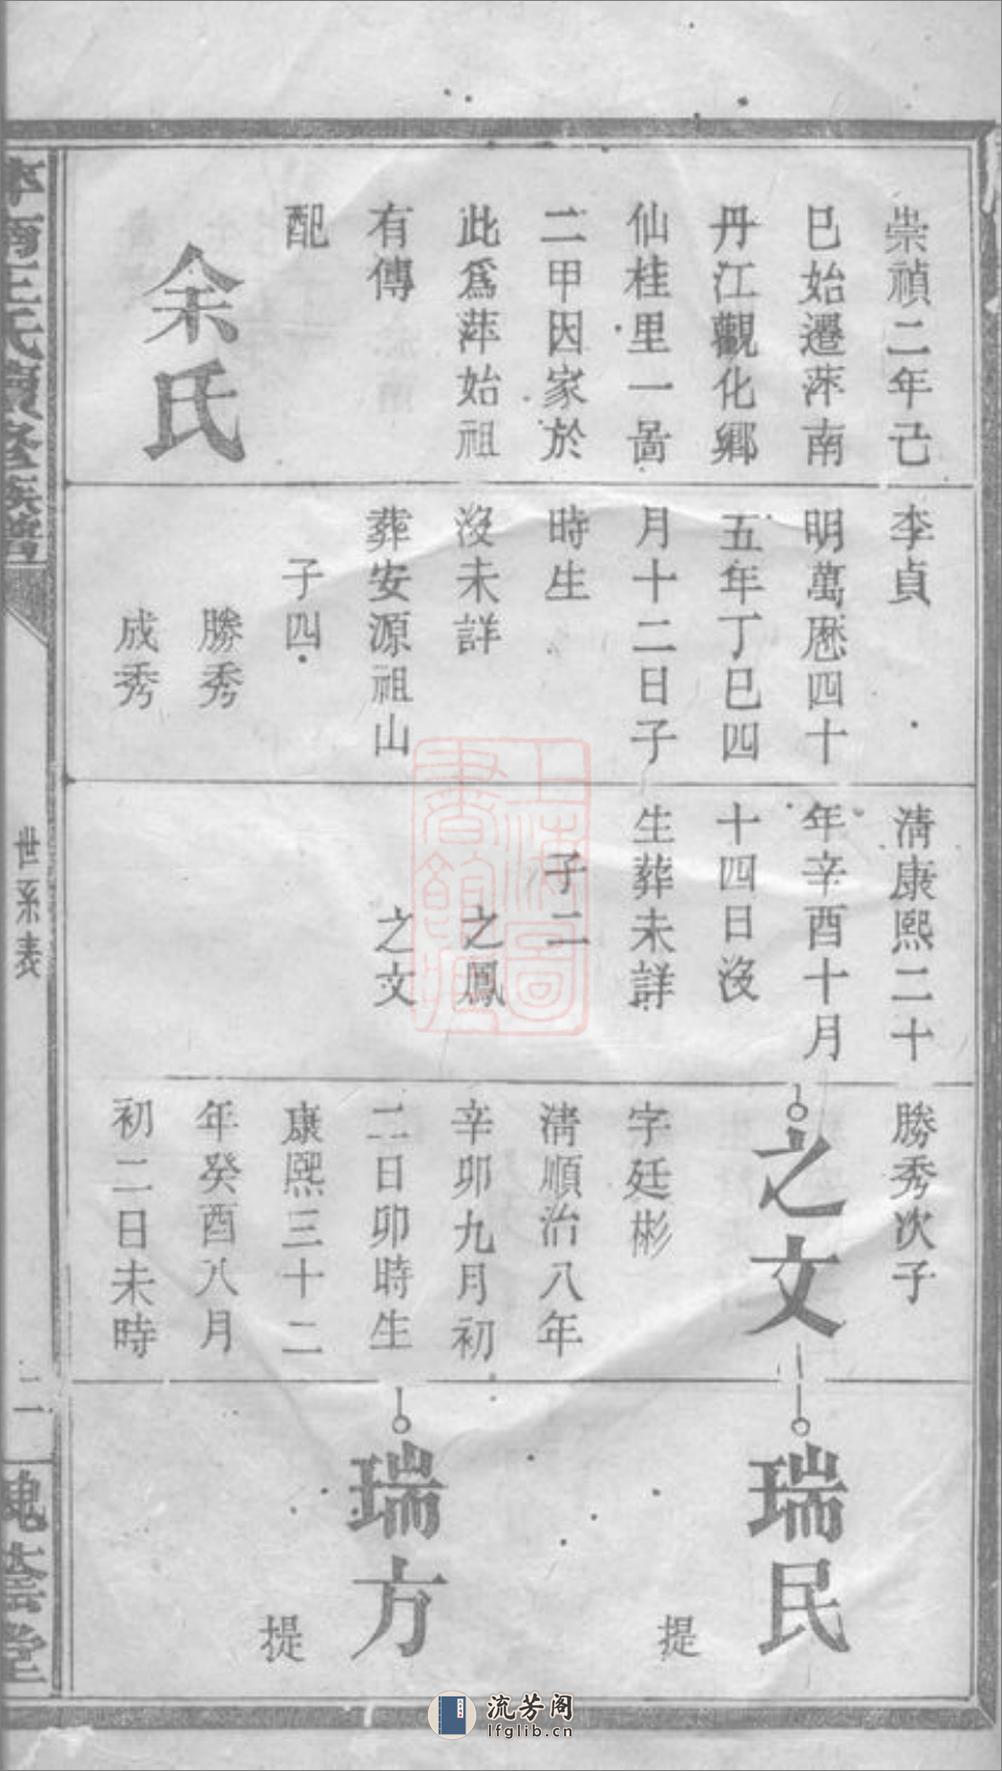 崇禎二年己
巳始遷萍南
丹江觀化鄉
仙桂里一啚
二甲因家於
此爲萍始祖
有傳
配
余氏
李貞
明萬厯四十
五年丁巳四
月十二日子
時生
沒未詳
葬安源祖山
子四
勝秀
成秀
淸康熙二十
年辛酉十月
十四日沒
生葬未詳
子二
之鳳
之文
勝秀次子
之文
字廷彬
淸順治八年
辛卯九月初
二日卯時生
康熙三十二
年癸酉八月
初二日未時
瑞民
提
瑞方
提
萍南王氏續修族譜
世系表
二
槐蔭堂
上海圖書館藏
流芳阁
lfglib.cn